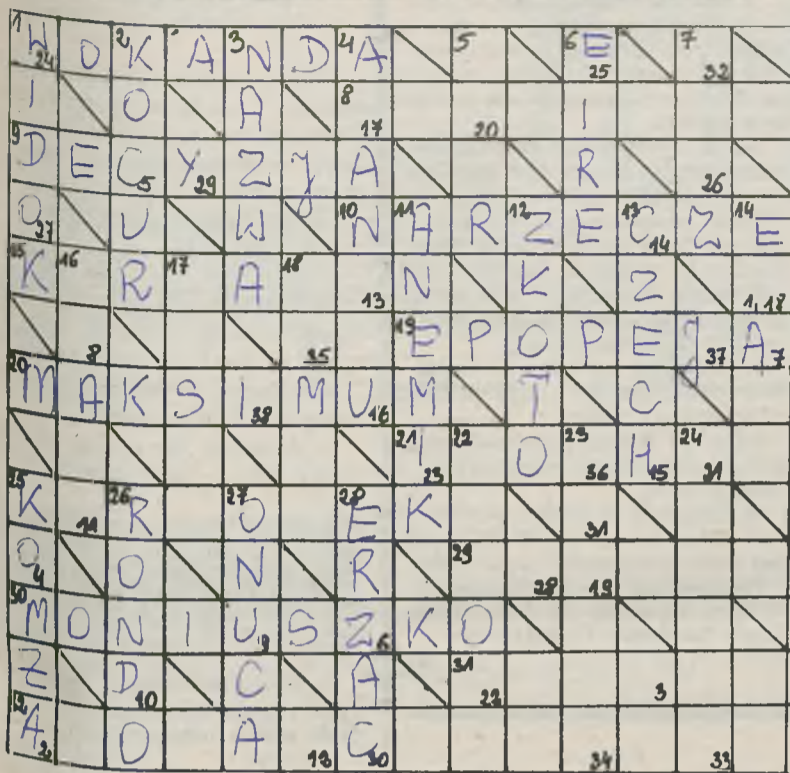 1 W 24 O 2 K A 3 N D 4 A 5 6 E 25 7 32
I O A 8 17 20 I
9 D E C 5 Y 29 Z J A R 26
O 27 U W 10 N 11 A R 12 Z E 13 C 14 Z 14 E
15 K 16 R 17 A 18 13 N K Z 1,18
8 35 19 E P O P E J 37 A 7
20 M A K S I 38 M U 16 M T C
21 I 23 22 O 23 36 H 15 24 21
25 K 11 26 R 27 O 28 E K 31
O 4 O N R 29 28 19
30 M O N I U 9 S Z 6 K O
Z D 10 C A 31 22 3
A 2 O A 12 C 30 34 33